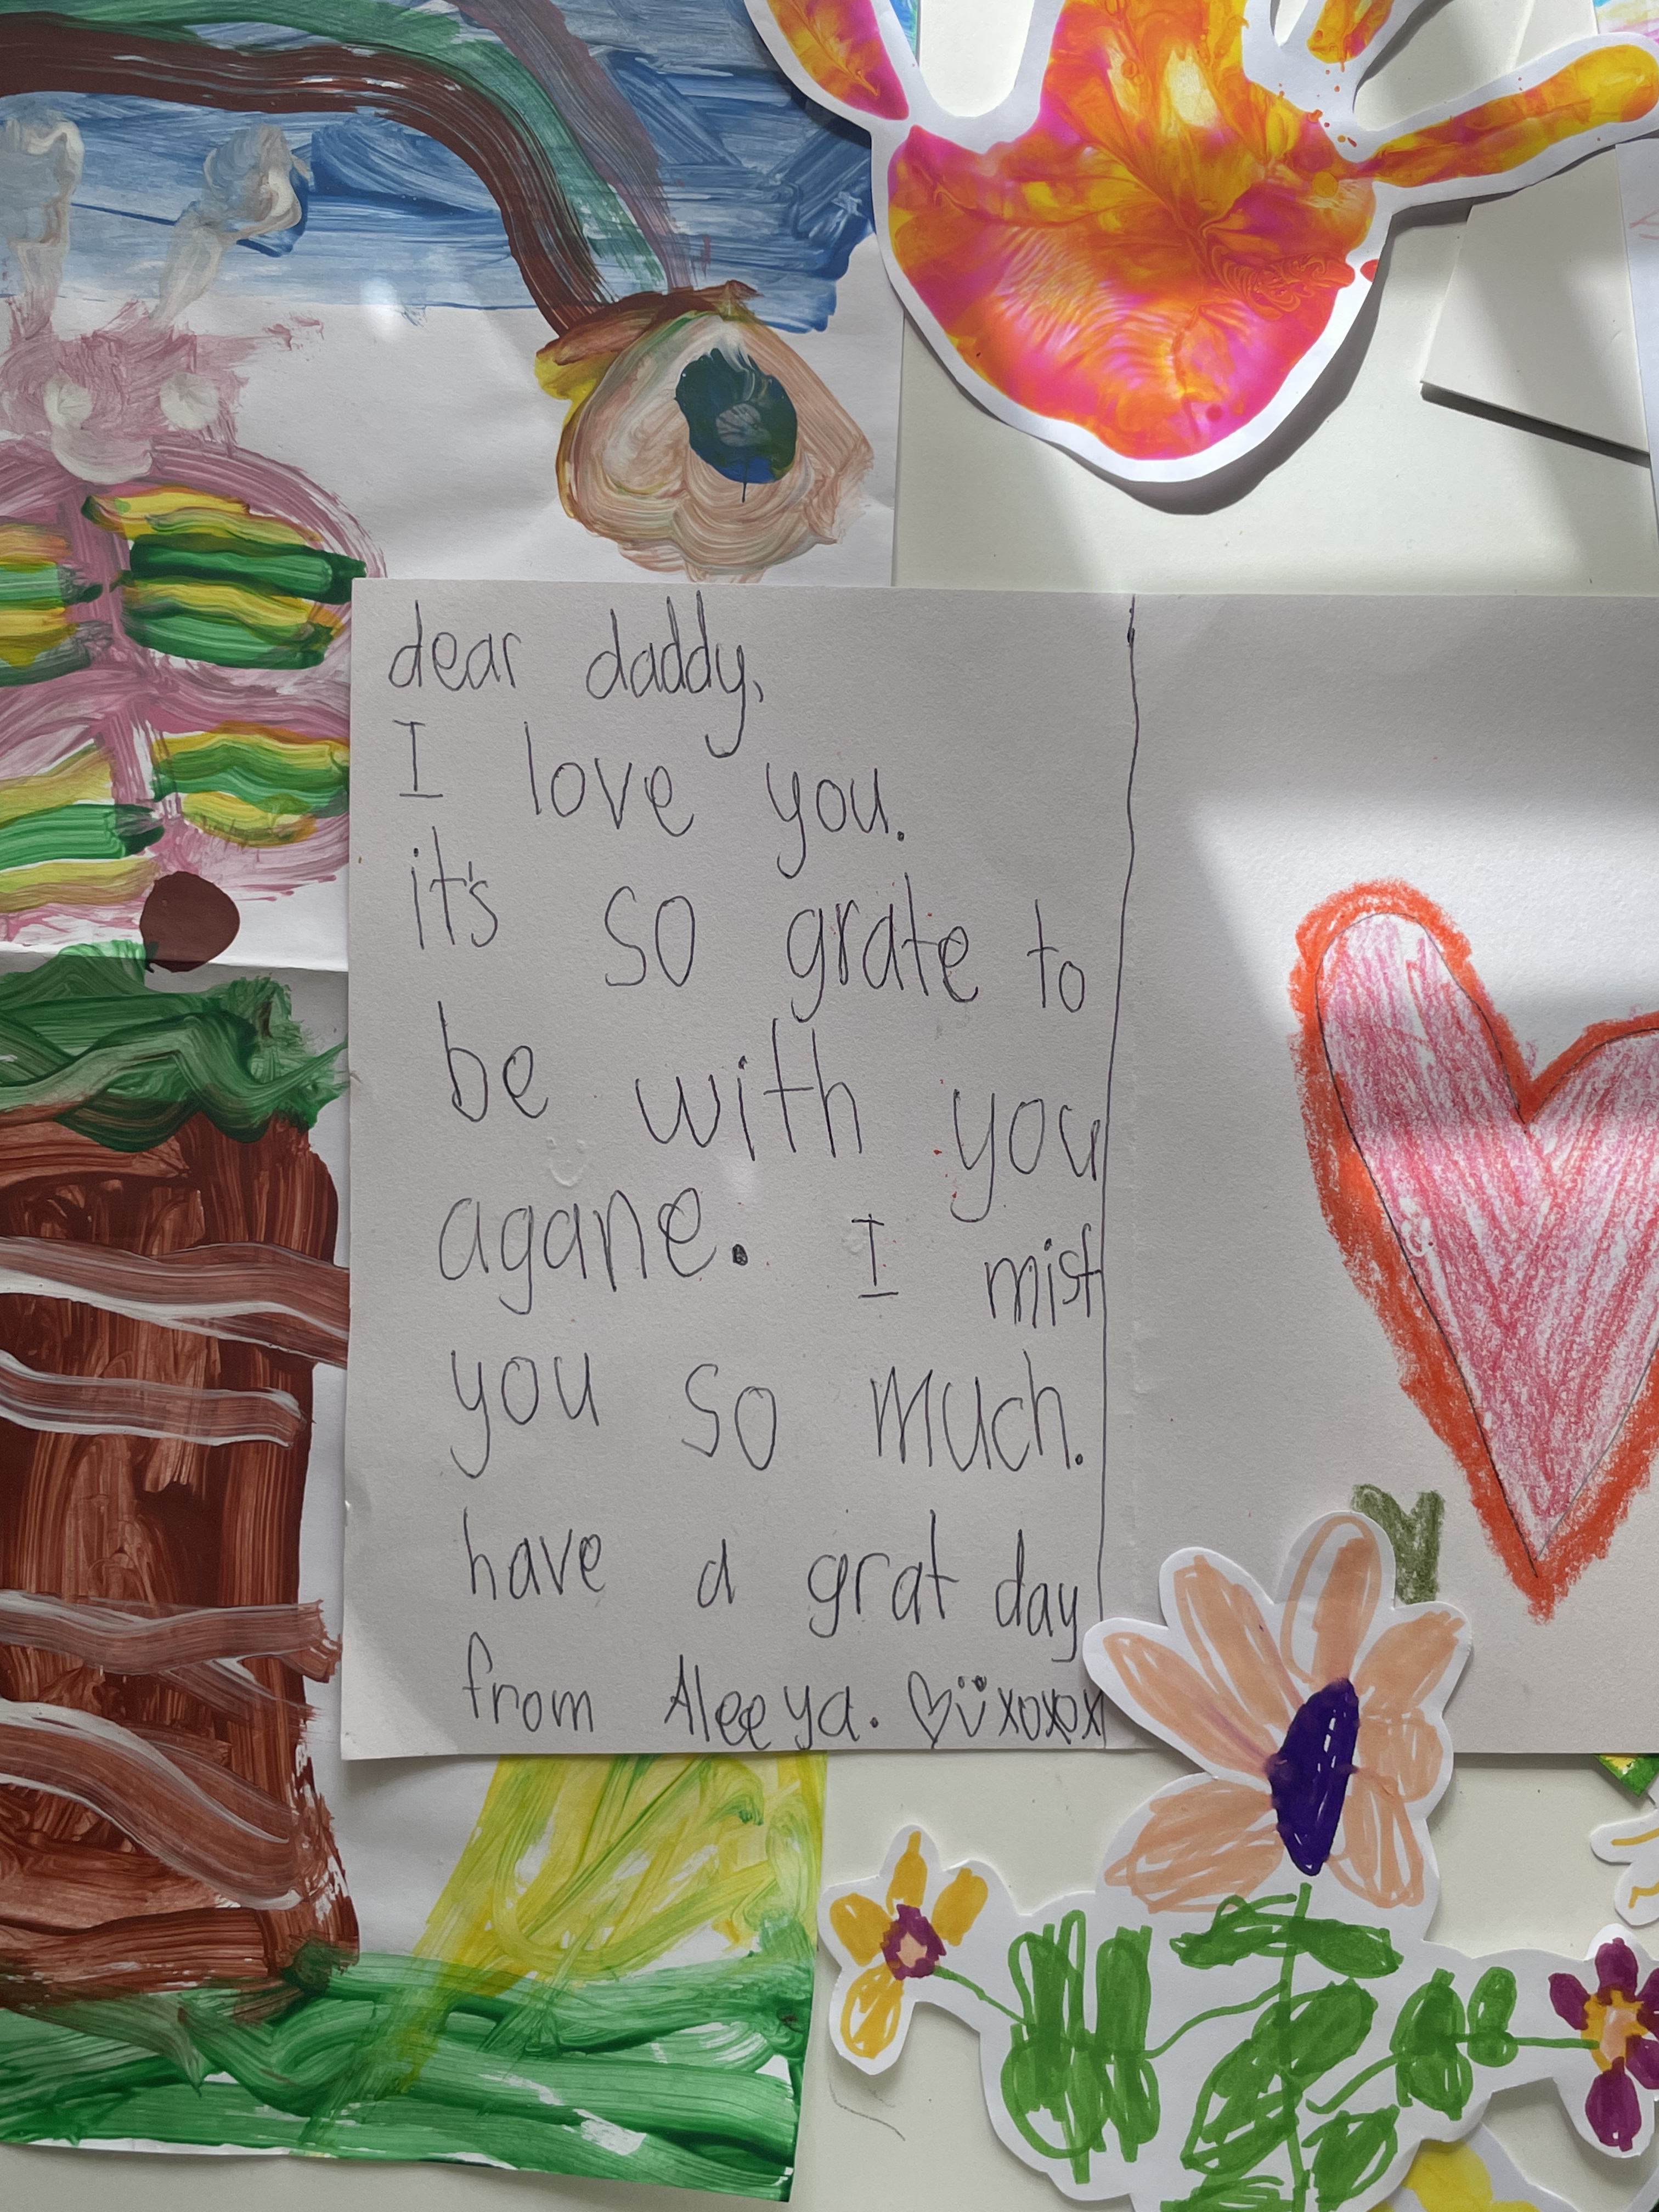 dear daddy,
I love you.
it's so grate to
be with you
agane. I mist
you so much.
have a grat day
from Aleeya. ♡ü xoxox